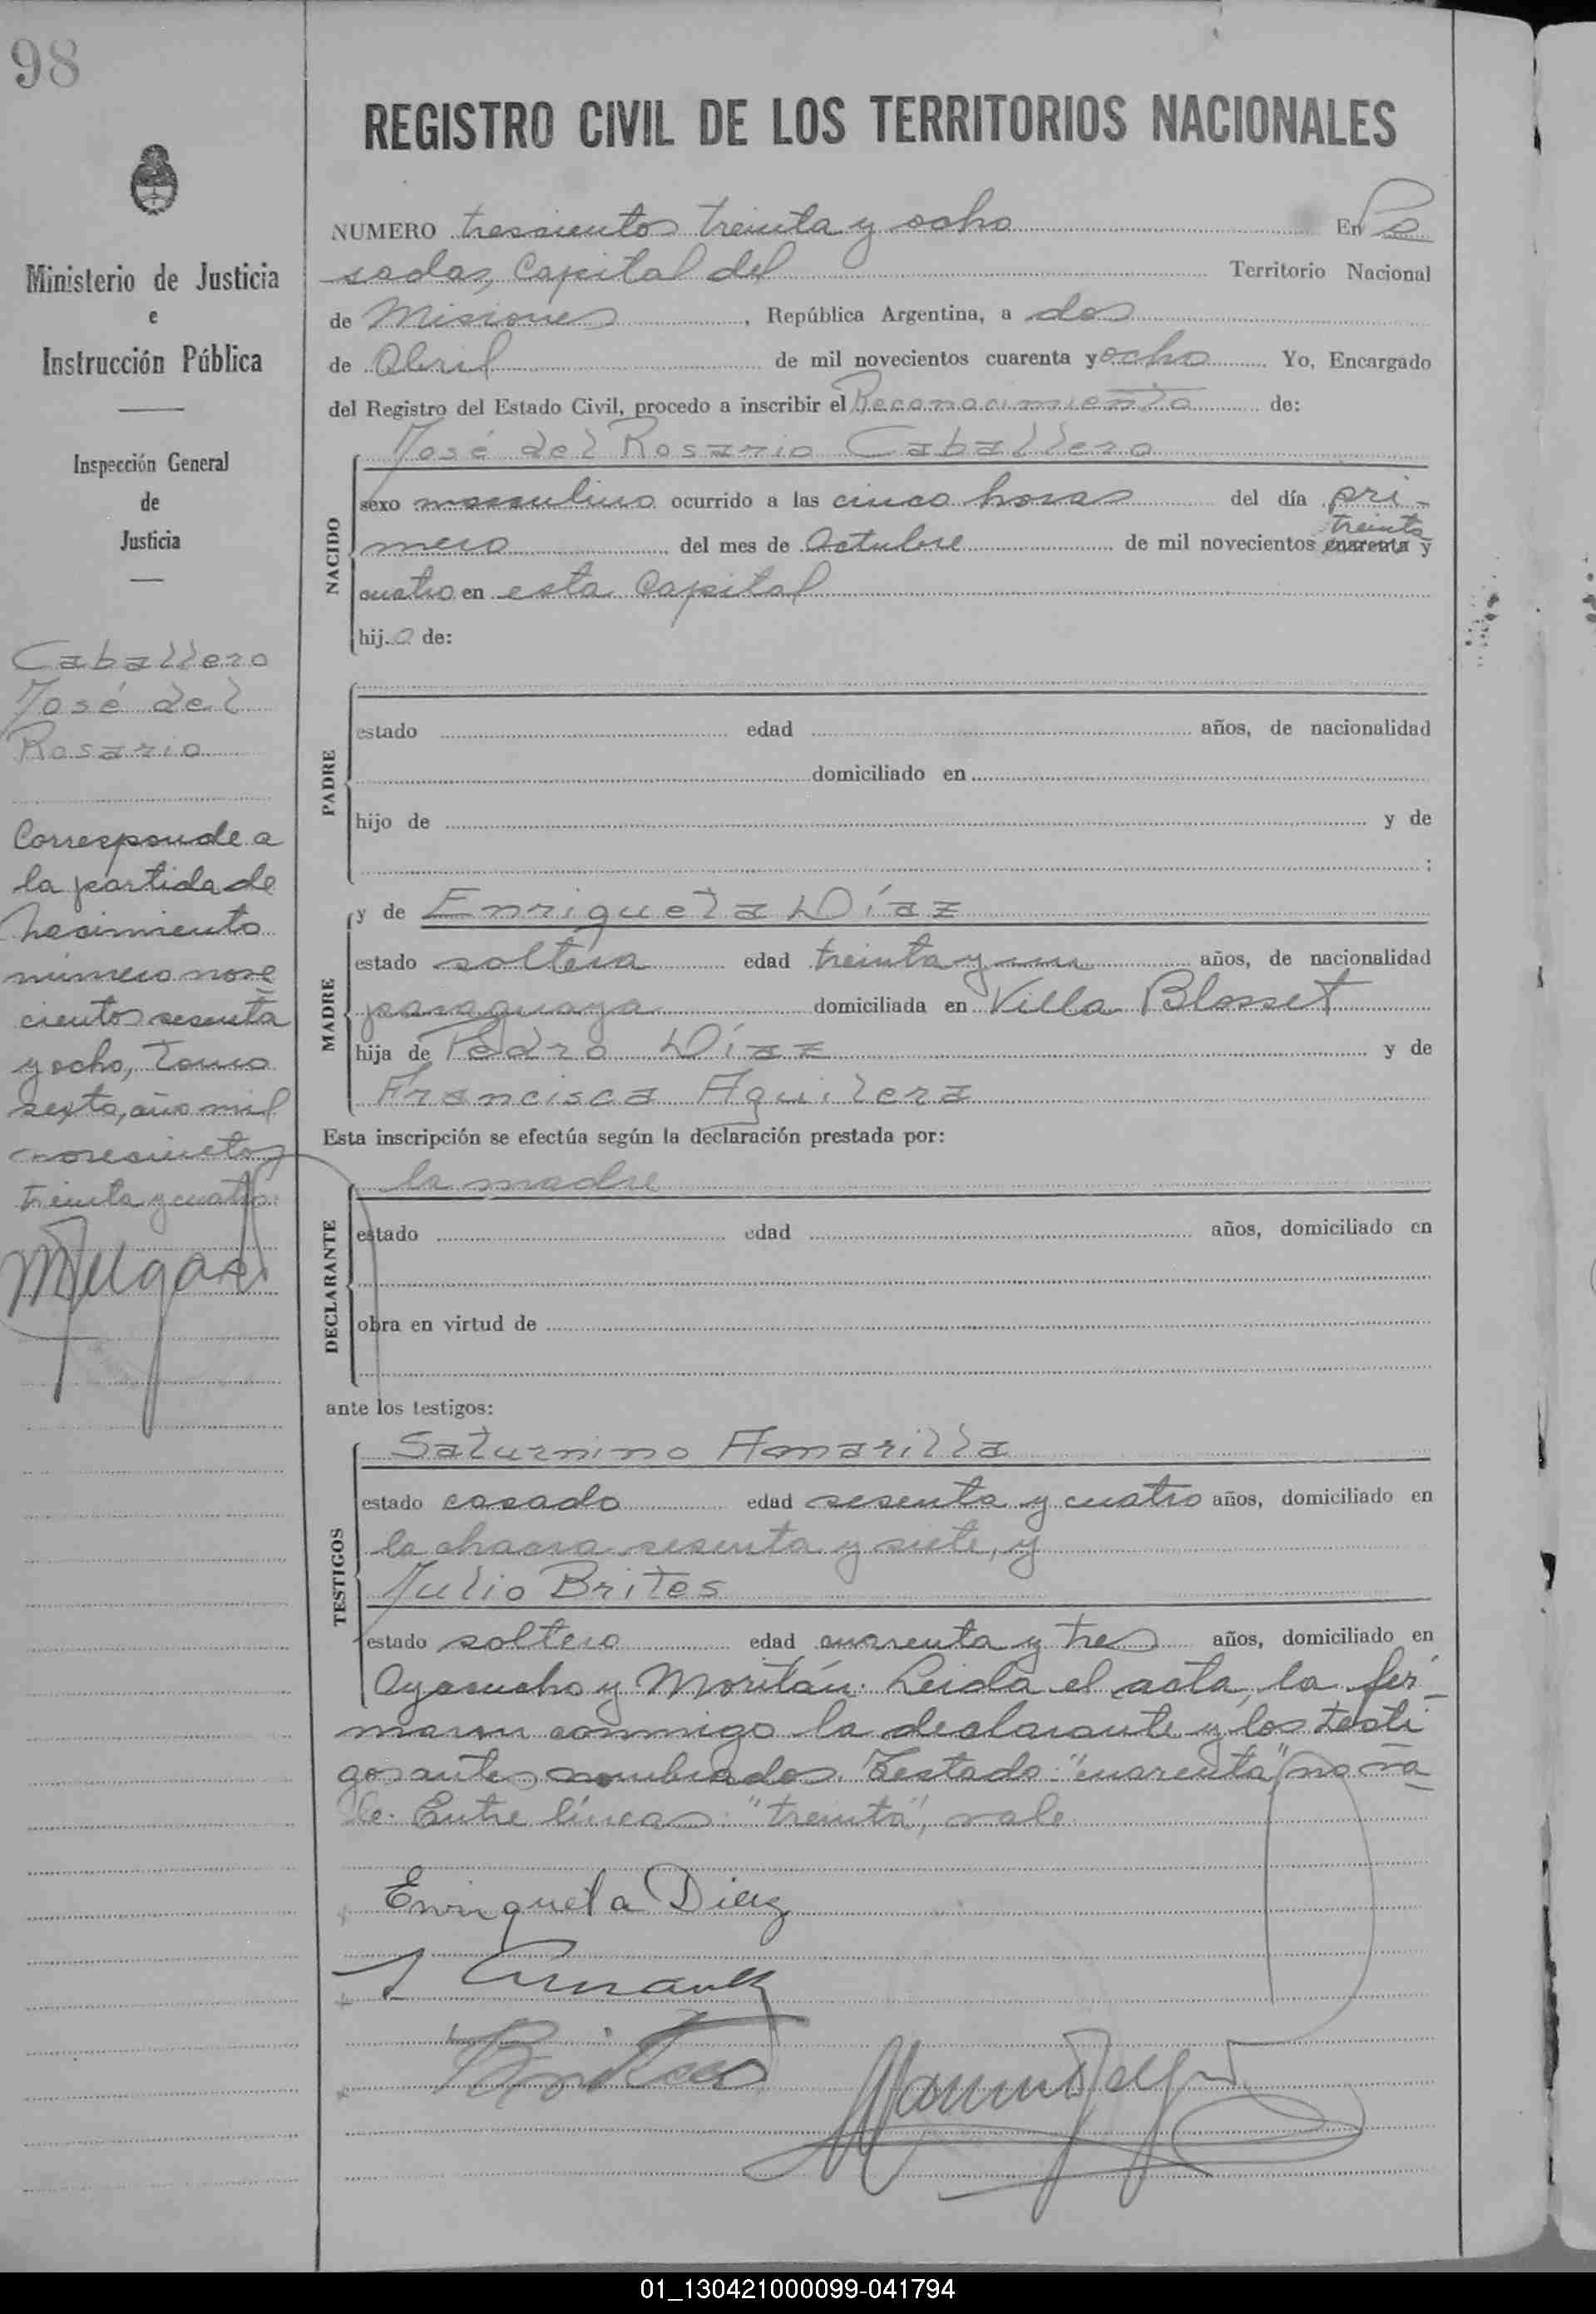 98
Ministerio de Justicia
e
Instrucción Pública
Inspección General
de
Justicia
Caballero
José del
Rosario
Corresponde a
la partida de
nacimiento
número nove
cientos sesenta
y ocho, tomo
sexto, año mil
novecientos
treinta y cuatro.
REGISTRO CIVIL DE LOS TERRITORIOS NACIONALES
NUMERO trescientos treinta y ocho En Po
sadas, Capital del Territorio Nacional
de Misiones, República Argentina, a dos
de Abril de mil novecientos cuarenta y ocho Yo, Encargado
del Registro del Estado Civil, procedo a inscribir el Reconocimiento de:
José del Rosario Caballero
NACIDO
sexo masculino ocurrido a las cinco horas del día pri-
treinta
mero del mes de Octubre de mil novecientos cuarenta y
cuatro en esta Capital
hijo de:
PADRE
estado edad años, de nacionalidad
domiciliado en
hijo de y de
;
MADRE
y de Enriqueta Díaz
estado soltera edad treinta y un años, de nacionalidad
paraguaya domiciliada en Villa Blosset
hija de Pedro Díaz y de
Francisca Aguilera
Esta inscripción se efectúa según la declaración prestada por:
la madre
DECLARANTE
estado edad años, domiciliado en
obra en virtud de
ante los testigos:
Saturnino Amarilla
TESTIGOS
estado casado edad sesenta y cuatro años, domiciliado en
la chacra sesenta y siete, y
Julio Brites
estado soltero edad cuarenta y tres años, domiciliado en
Ayacucho y Moritán. Leida el acta, la fir-
maron conmigo la declarante y los testi
gos antes nombrados. Testado: "cuarenta", no va
le. Entre líneas: "treinta", vale
Enriqueta Diaz
Brites
01_130421000099-041794